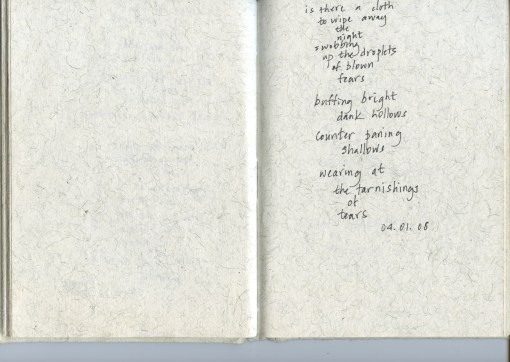 is there a cloth
to wipe away
the
night
swobbing
up the droplets
of blown
tears
buffing bright
dank hollows
counter paning
shallows
wearing at
the tarnishings
of
tears
04.01.08